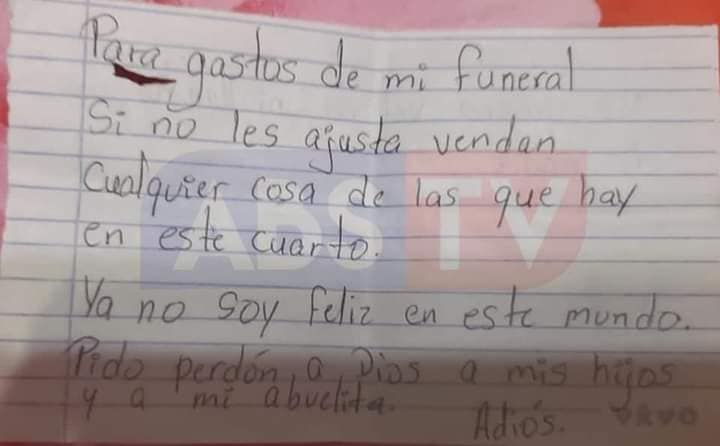 Para gastos de mi funeral
Si no les ajusta vendan
Cualquier cosa de las que hay
en este cuarto.
Ya no soy feliz en este mundo.
Pido perdón, a Dios a mis hijos
y a mi abuelita. Adiós.
ABS TV